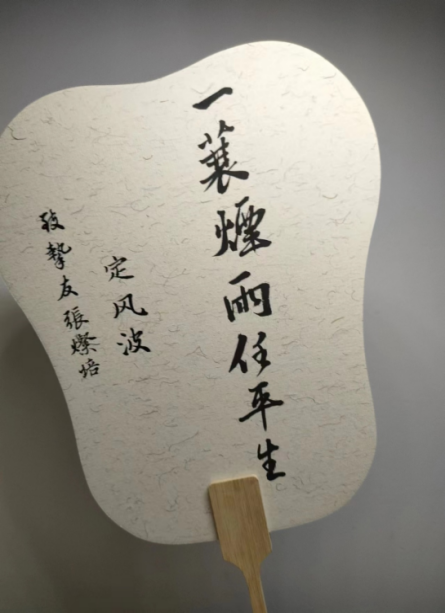 一蓑煙雨任平生
定风波
致摯友張燦培